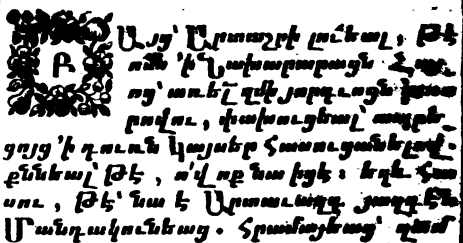 Բ
Այց՝ Արտաշրի լուեալ, թէ
ոմն 'ի Նախարարացն Հայ-
ոց՝ առեալ զմի յորդւոցն Խոս-
րովու, փախուցեալ՝ ապրե-
ցոյց 'ի դուռն կայսեր հասուցանելով.
քննեալ՝ թէ, ո՛վ ոք նա իցէ։ եղեւ հա-
սու, թէ՝ նա է Արտաւազդ յազգէն
Մանդակունեաց. Հրամայեաց՝ զամ